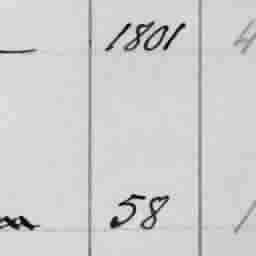 1801
58